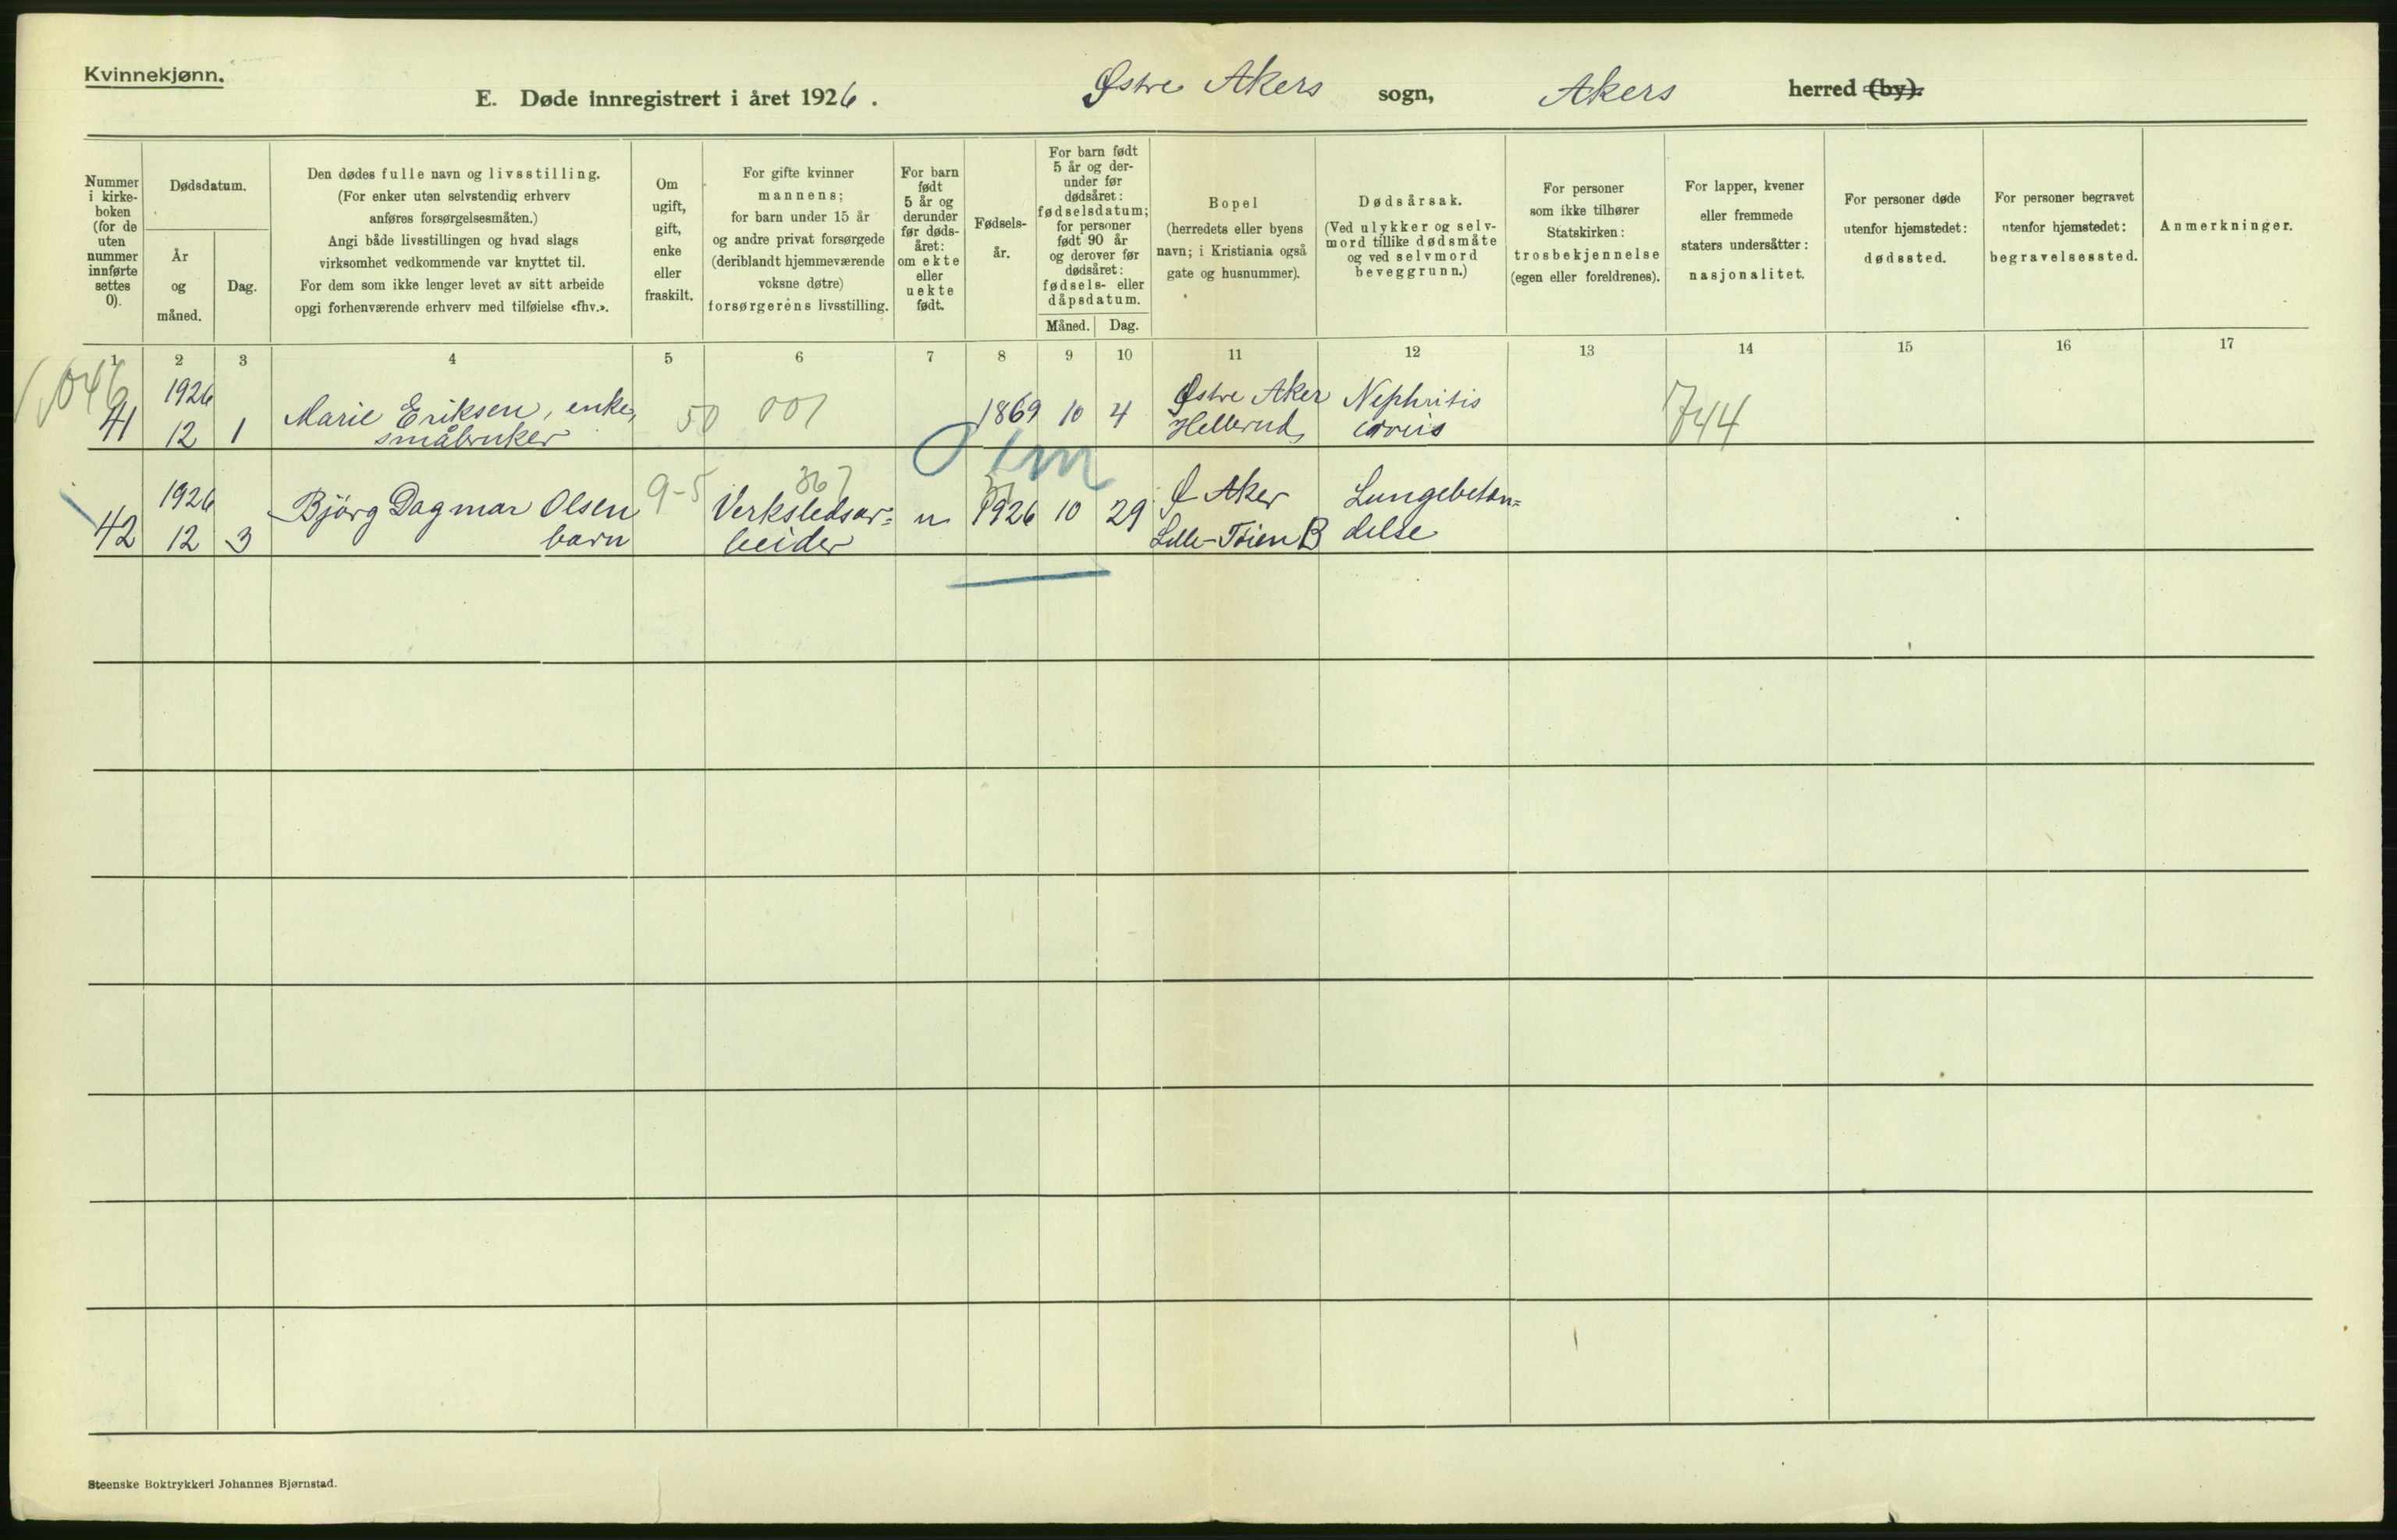 Kvinnekjønn.
E. Døde innregistrert i året 1926. Østre Akers sogn, Akers herred (by).
Nummer i kirke-boken (for de uten nummer innførte settes 0).
Dødsdatum.
År og måned.
Dag.
Den dødes fulle navn og livsstilling.
(For enker uten selvstendig erhverv
anføres forsørgelsesmåten.)
Angi både livsstillingen og hvad slags
virksomhet vedkommende var knyttet til.
For dem som ikke lenger levet av sitt arbeide
opgi forhenværende erhverv med tilføielse «fhv.».
Om
ugift,
gift,
enke
eller
fraskilt.
For gifte kvinner
mannens;
for barn under 15 år
og andre privat forsørgede
(deriblandt hjemmeværende
voksne døtre)
forsørgerens livsstilling.
For barn
født
5 år og
derunder
før døds-
året:
om ekte
eller
uekte
født.
Fødsels-
år.
For barn født
5 år og der-
under før
dødsåret:
fødselsdatum;
for personer
født 90 år
og derover før
dødsåret:
fødsels- eller
dåpsdatum.
Måned. Dag.
Bopel
(herredets eller byens
navn; i Kristiania også
gate og husnummer).
Dødsårsak.
(Ved ulykker og selv-
mord tillike dødsmåte
og ved selvmord
beveggrunn.)
For personer
som ikke tilhører
Statskirken:
trosbekjennelse
(egen eller foreldrenes).
For lapper, kvener
eller fremmede
staters undersåtter:
nasjonalitet.
For personer døde
utenfor hjemstedet:
dødssted.
For personer begravet
utenfor hjemstedet:
begravelsessted.
Anmerkninger.
1 2 3 4 5 6 7 8 9 10 11 12 13 14 15 16 17
1926 Østre Aker Nephritis
41 12 1 Marie Eriksen, enke, 50 001 1869 10 4 Hellerud, 744
småbruker
1m
367
1926 9-5 Ø Aker Lungebeten=
42 12 3 Bjørg Dagmar Olsen Verkstedsar= u 1926 10 29 Lille-Tøien B delse
barn beider
Steenske Boktrykkeri Johannes Bjørnstad.